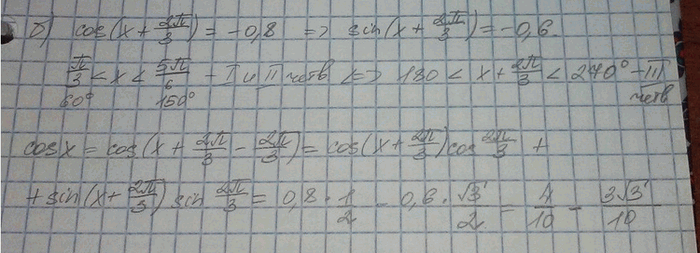 б) cos(x + 2π/3) = -0,8 => sin(x + 2π/3) = -0,6.
π/3 < x < 5π/6 - I и II четв <=> 180 < x + 2π/3 < 270° - III
60° 150° четв
cos x = cos(x + 2π/3 - 2π/3) = cos(x + 2π/3) cos 2π/3 +
+ sin(x + 2π/3) sin 2π/3 = 0,8 · 1/2 - 0,6 · √3/2 = 4/10 - 3√3/10